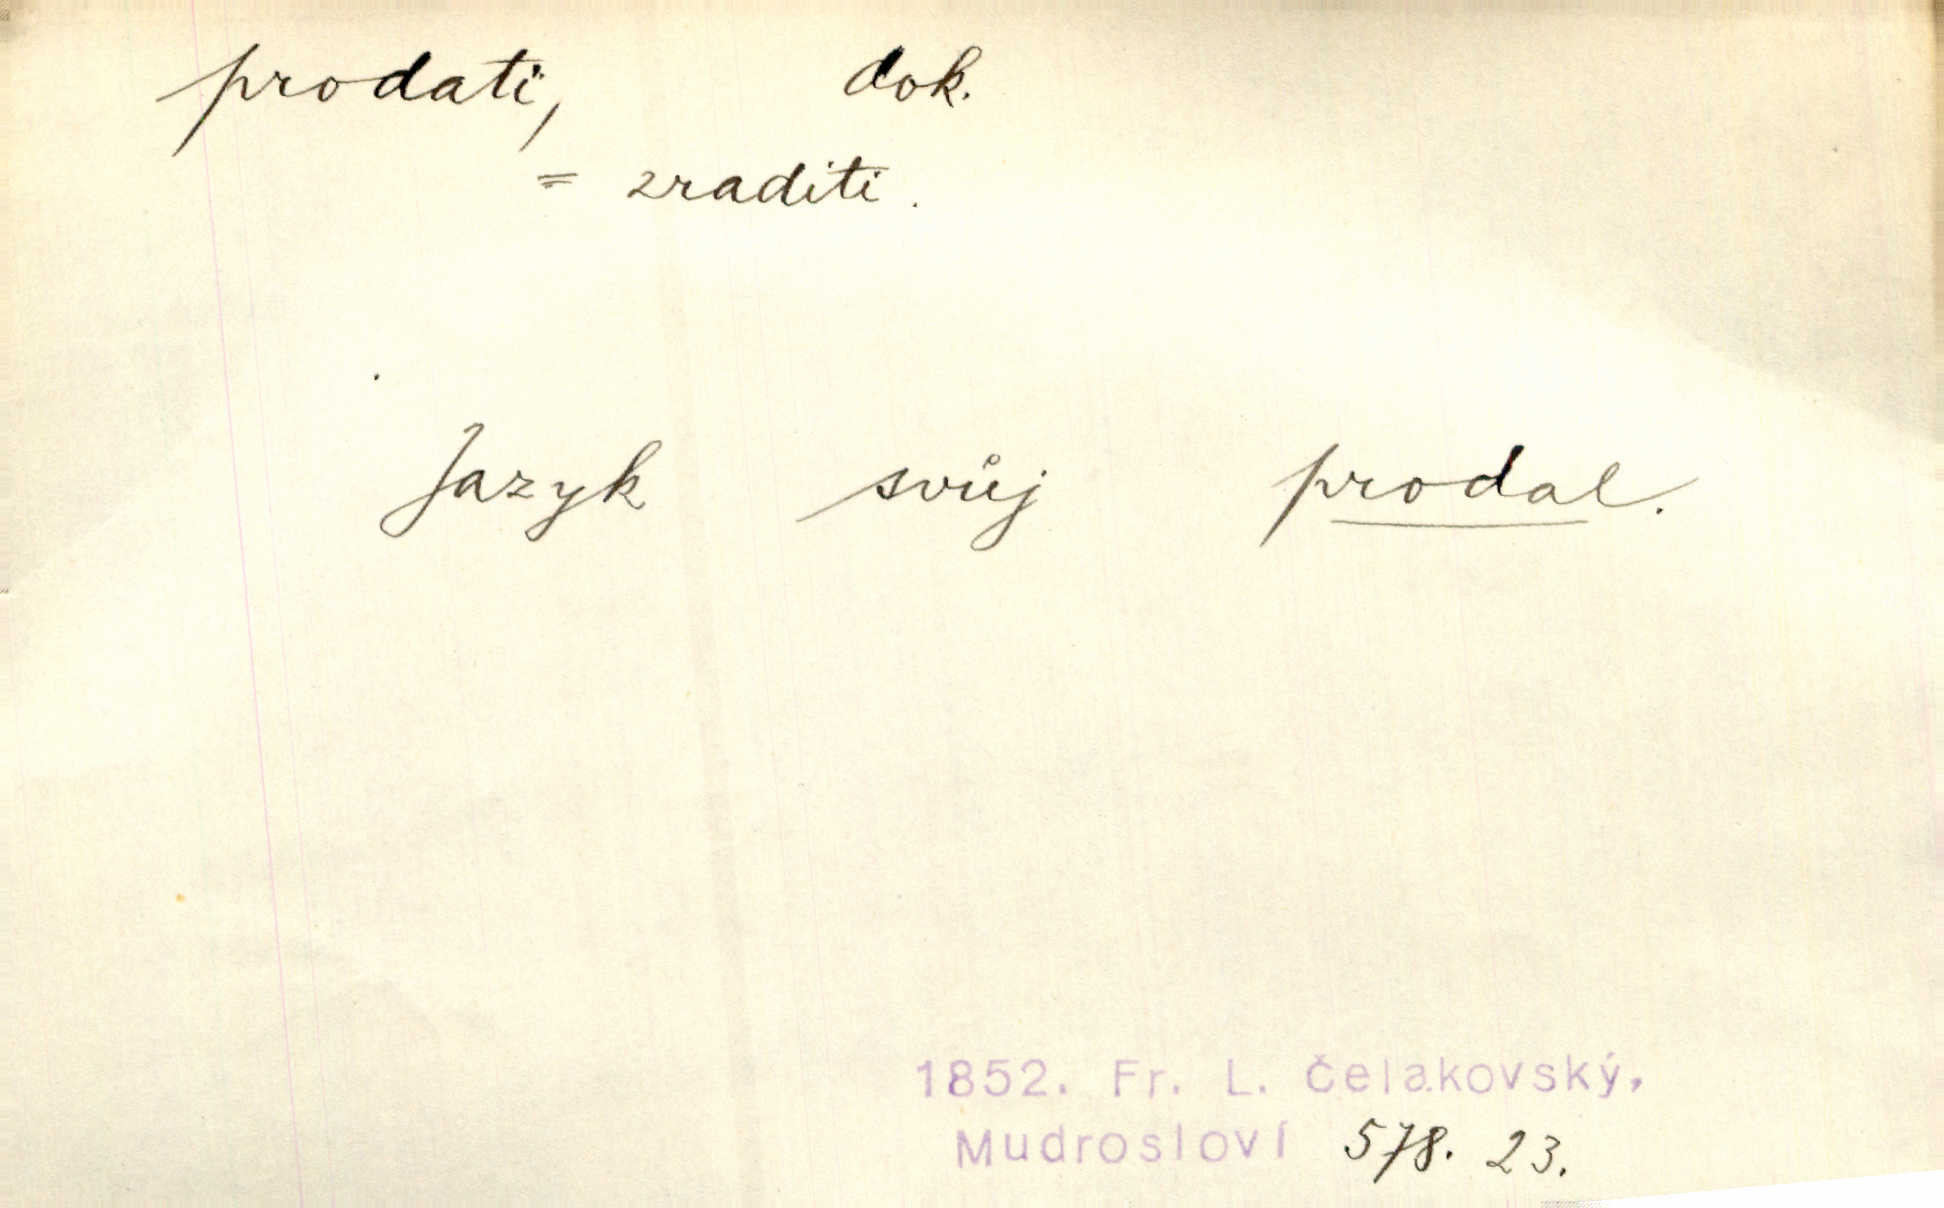 prodati, dok.
= zraditi.
Jazyk svůj prodal.
1852. Fr. L. Čelakovský,
Mudrosloví 578. 23.